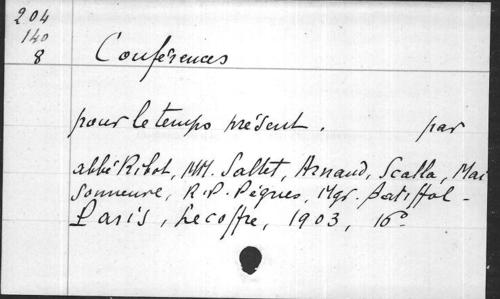 204
140
8
Conférences
pour le temps présent. par
abbé Ribot, MM. Saltet, Arnaud, Scalla, Mai
sonneuve, R.P. Pègues, Mgr. Batiffol -
Paris, Lecoffre, 1903, 16°